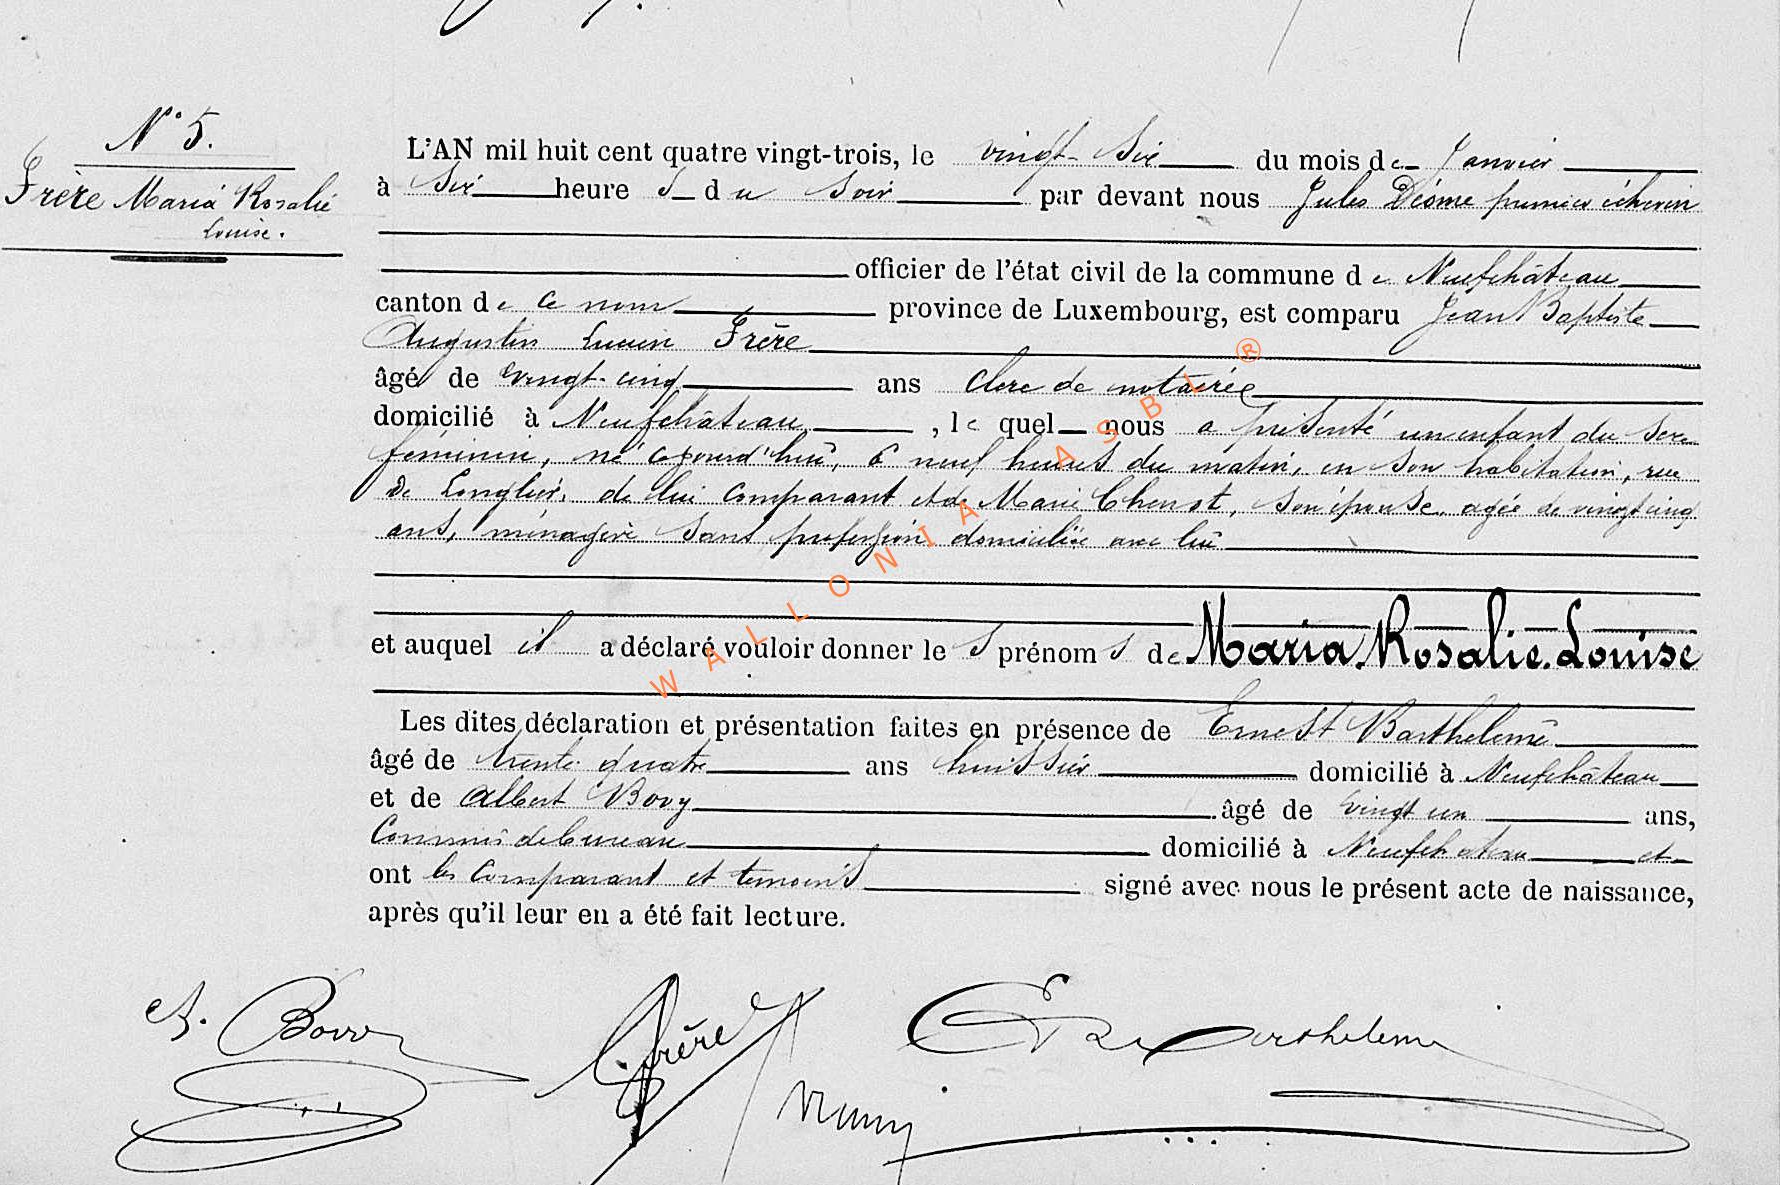 N° 5.
Frère Maria Rosalie
Louise.
L'AN mil huit cent quatre vingt-trois, le vingt-six du mois de Janvier
à six heures du soir par devant nous Jules premier échevin
officier de l'état civil de la commune de Neufchâteau
canton de ce nom province de Luxembourg, est comparu Jean Baptiste
Augustin Lucien Frère
âgé de vingt-cinq ans clerc de notaire
domicilié à Neufchâteau, le quel nous a présenté un enfant du sexe
féminin, né cejourd'hui, à neuf heures du matin, en son habitation, rue
de Longlier, de lui comparant et de Marie son épouse, agée de vingt cinq
ans, ménagère sans profession domiciliée avec lui
et auquel il a déclaré vouloir donner les prénoms de Maria. Rosalie. Louise
Les dites déclaration et présentation faites en présence de Ernest Barthelemi
âgé de trente-quatre ans huissier domicilié à Neufchâteau
et de Albert Bovy âgé de vingt un ans,
Commis de bureau domicilié à Neufchateau et
ont les comparant et temoins signé avec nous le présent acte de naissance,
après qu'il leur en a été fait lecture.
A. Bovy Frère E Barthelemi
WALLONIA ASBL ®